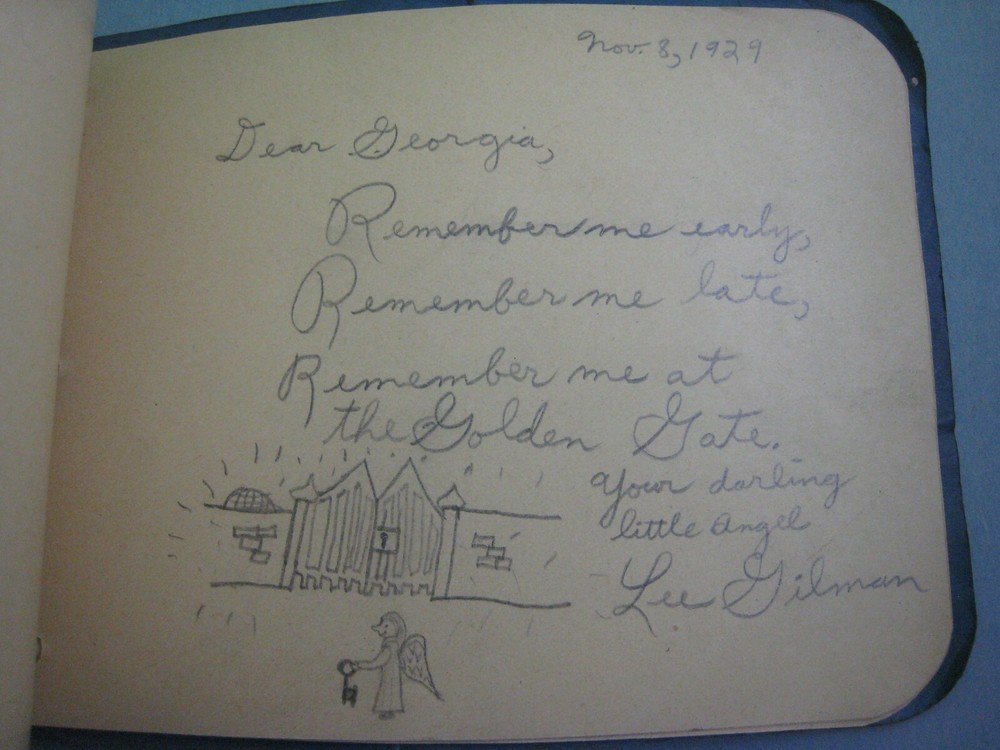 Nov. 8, 1929
Dear Georgia,
Remember me early,
Remember me late,
Remember me at
the Golden Gate.
Your darling
little angel
Lee Gilman